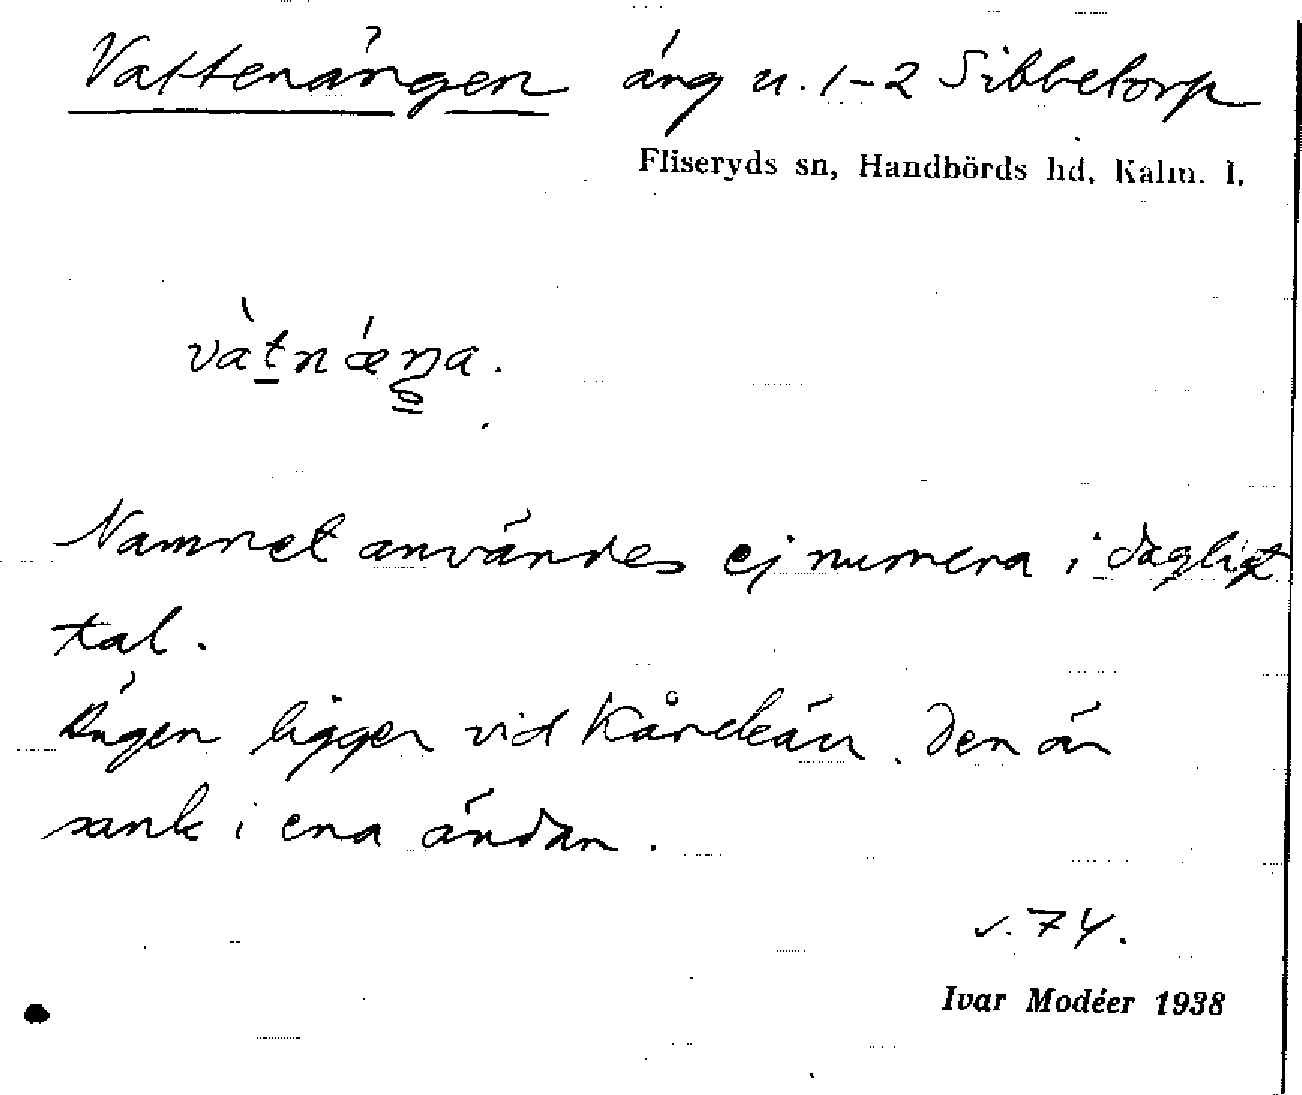 Vattenängen äng u. 1-2 Sibbetorp
Fliseryds sn, Handbörds hd, Kalm. l.
vàtnǽŋa.
Namnet användes ej numera i dagligt
tal.
Ängen ligger vid . Den är
sank i ena ändan.
s. 74.
Ivar Modéer 1938